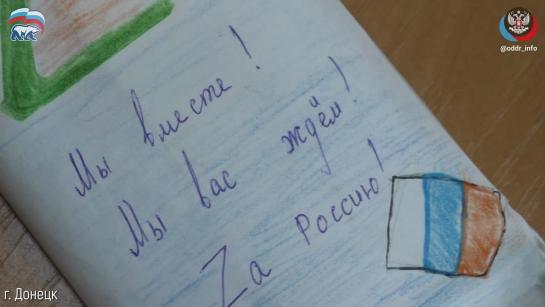 @oddr_info
Мы вместе!
Мы вас ждём!
Zа Россию!
г. Донецк